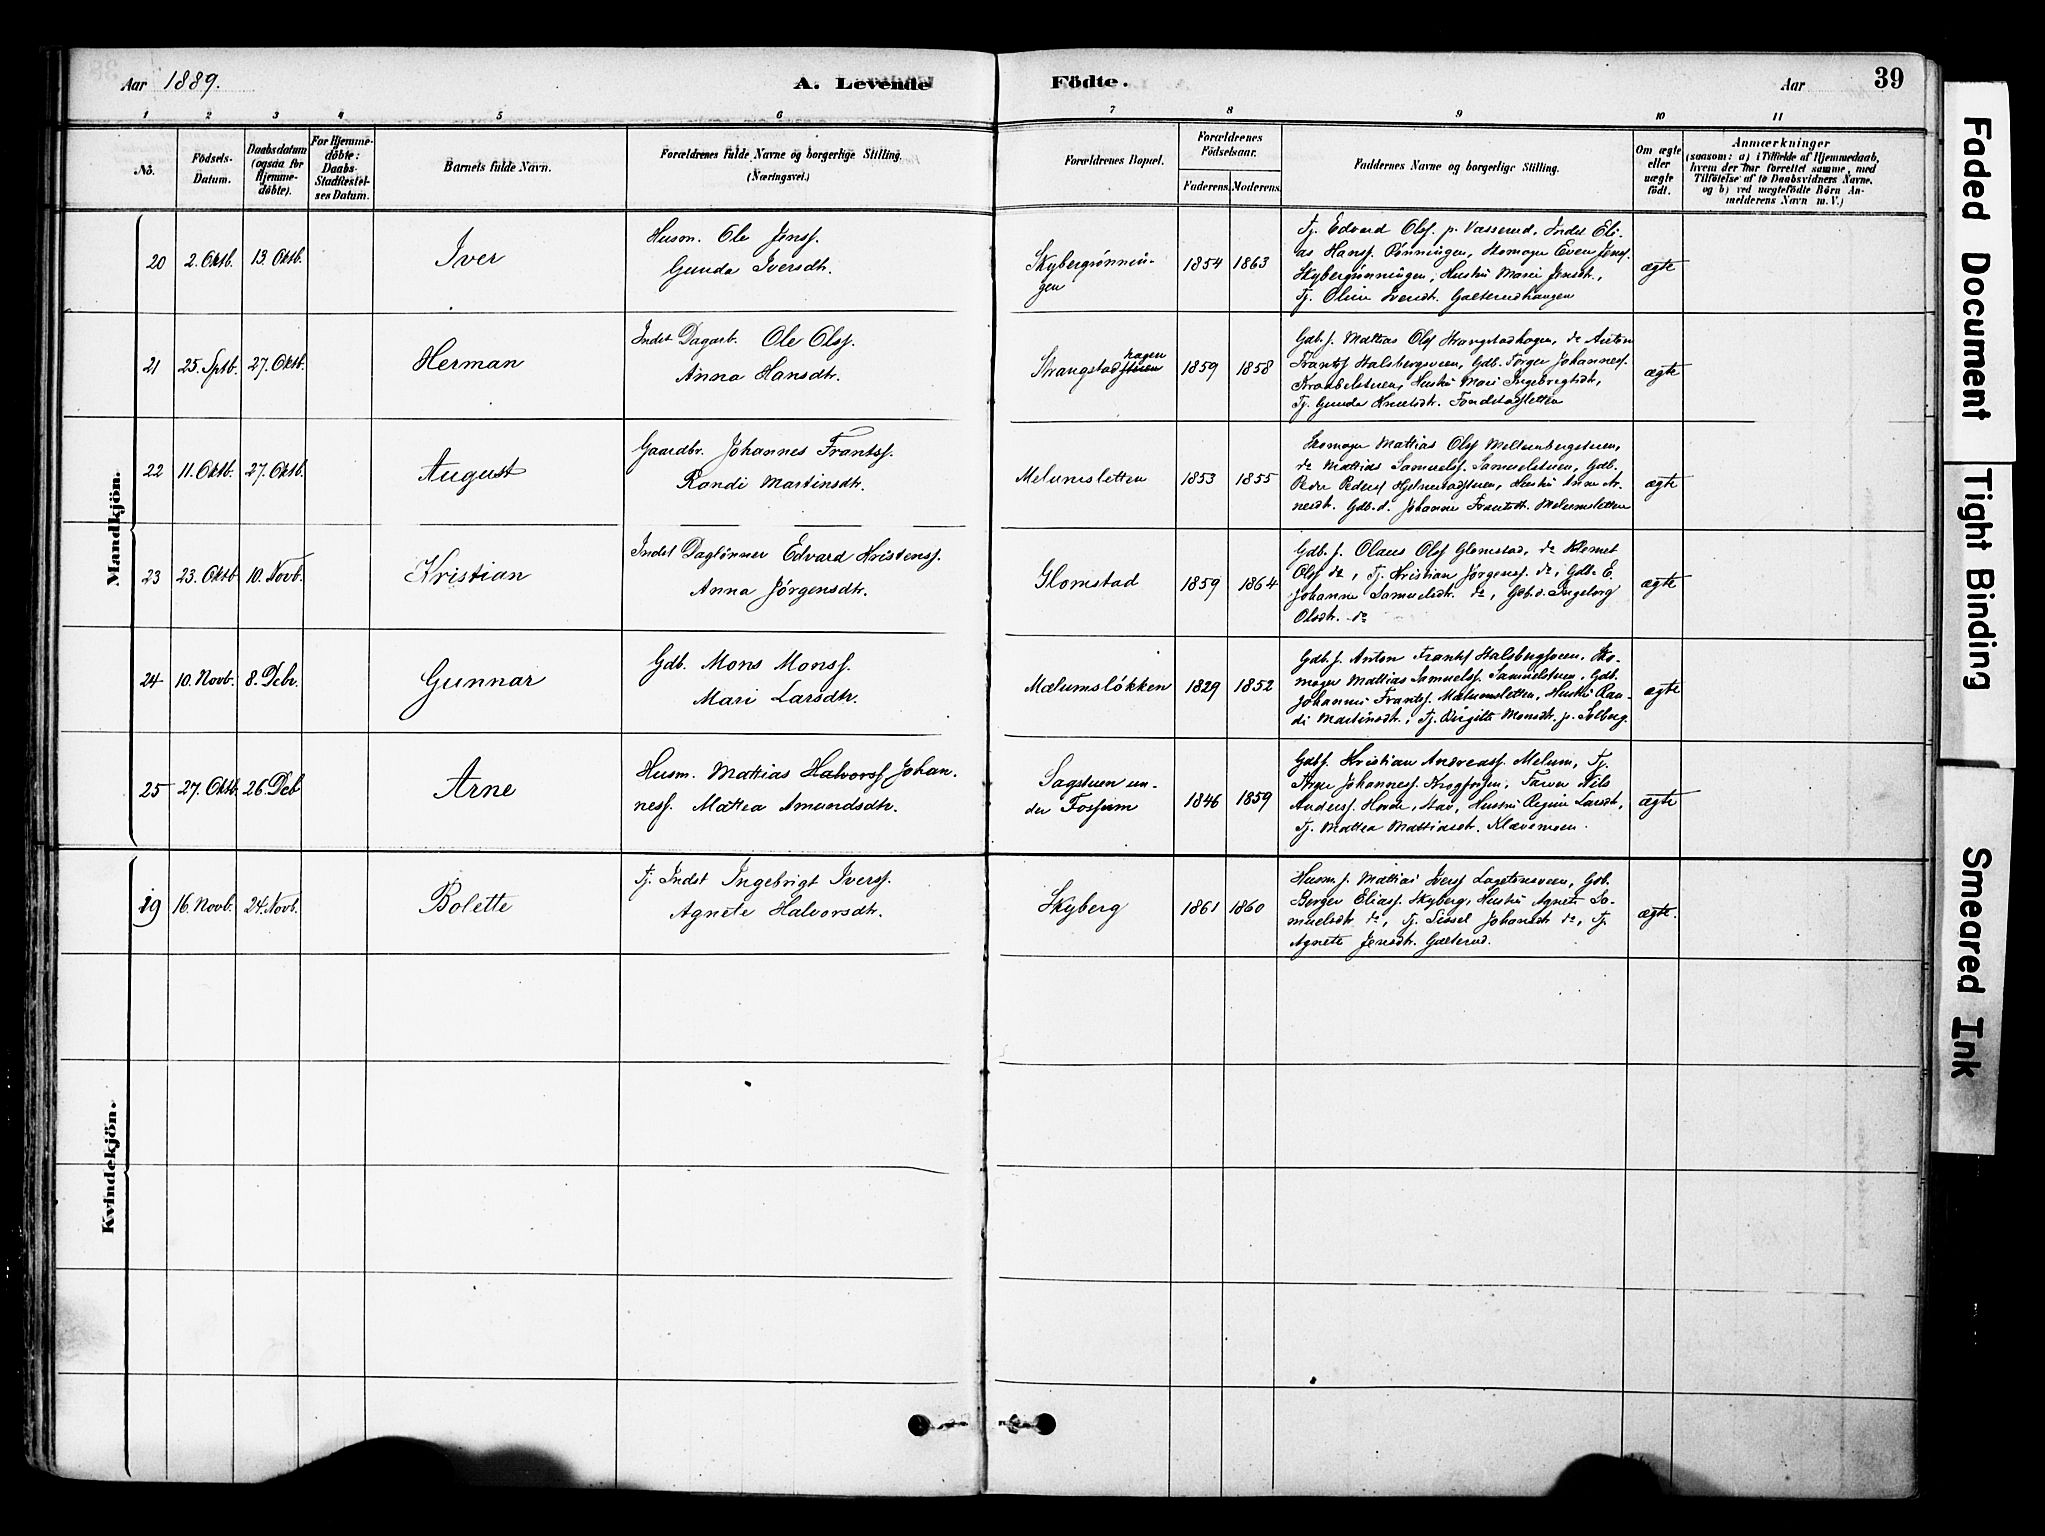 Aar 1889.
A. Levende
Födte.
Aar
39
1 2 3 4 5 6 7 8 9 10 11
No.
Födsels-
Datum.
Daabsdatum
(ogsaa for
Hjemme-
döbte).
For Hjemme-
döbte:
Daabs-
Stadfæstel-
ses Datum.
Barnets fulde Navn.
Forældrenes fulde Navne og borgerlige Stilling.
(Næringsvei.)
Forældrenes Bopæl.
Forældrenes
Födselsaar.
Faderens. Moderens.
Faddernes Navne og borgerlige Stilling.
Om ægte
eller
uægte
födt.
Anmærkninger
(saasom: a) i Tilfælde af Hjemmedaab,
hvem der har forrettet samme, med
Tilföielse af to Daabsvidners Navne,
og b) ved uægtefödte Börn An-
melderens Navn m. V.)
Mandkjön.
20 2. Oktb. 13. Oktb. Iver
Husm. Ole Jensf.
Gunda Iversdtr.
Skybergrønnin-
gen
1854 1863
Tj. Edvard Olsf. p. Vasserud, Indst Eli-
as Hansf. Rønningen, Skomager Even Jensf.
Skybergrønningen, Hustru Marie Jensdtr.,
Tj. Oline Iversdtr. Galterudhaugen
ægte
21 25. Sptb. 27. Oktb. Herman
Indst Dagarb. Ole Olsf.
Anna Hansdtr.
hagen
Strangstadstuen
1859 1858
Gdb. f. Mathias Olsf Strangstadhagen, do Anton
Frantsf Halsbergsveen, Gdb. Torger Johannesf.
Krabbelstuen, Hustru Mari Ingebregtsdtr,
Tj. Gunda Knutsdtr. Fondstadsletten
ægte
22 11. Oktb. 27. Oktb. August
Gaardbr. Johannes Frantsf.
Randi Martinsdtr.
Melumsletten
1853 1855
Skomager Mattias Olsf Melumbergstuen,
do Mattias Samuelsf. Samuelstuen, Gdb.
Peder Pedersf Hjelmstadstuen, Hustru Anne Ar-
nesdtr. Gdb.d. Johanne Frantsdtr. Melumsletten
ægte
23 23. Oktb. 10. Novb. Kristian
Indst Daglönner Edvard Kristensf.
Anna Jörgensdtr.
Glomstad
1859 1864
Gdb. f. Olaus Olsf Glomstad, do Klemet
Olsf do, Tj. Kristian Jörgensf. do, Gdb. E.
Johanne Samuelsdtr. do, Gdb.d. Ingeborg
Olsdtr. do
ægte
24 10. Novb. 8. Debr. Gunnar
Gdb. Mons Monsf.
Mari Larsdtr.
Mælumslökken
1829 1852
Gdb. f. Anton Frantsf Halsbergsveen, Sko-
mager Mattias Samuelsf. Samuelstuen, Gdb.
Johannes Frantsf. Mælumsletten, Hustru Ran-
di Martinsdtr., Tj. Birgitte Monsdtr. p. Solberg.
ægte
25 27. Oktb. 26. Deb Arne
Husm. Mattias Halvorsf Johan-
nesf. Mattea Amundsdtr.
Sagstuen un-
der Fossum
1846 1859
Gdb f. Kristian Andreasf. Melum, Tj.
Johannesf.
Andersf. Hustru Regine Larsdtr,
Tj. Mattea Mattiasdtr. Klævemoen.
ægte
Kvindekjön.
19 16. Novb. 24. Novb. Bolette
Tj. Indst Ingebrigt Iversf.
Agnete Halvorsdtr.
Skyberg
1861 1860
Husm f. Mattias Iversf Sagetensveen, Gdb.
Berger Eliasf. Skyberg, Hustru Agnete Sa-
muelsdtr do, Tj. Sissel Johansdtr do, Tj.
Agnete Jensdtr. Galterud.
ægte.
Faded Document
Tight Binding
Smeared Ink